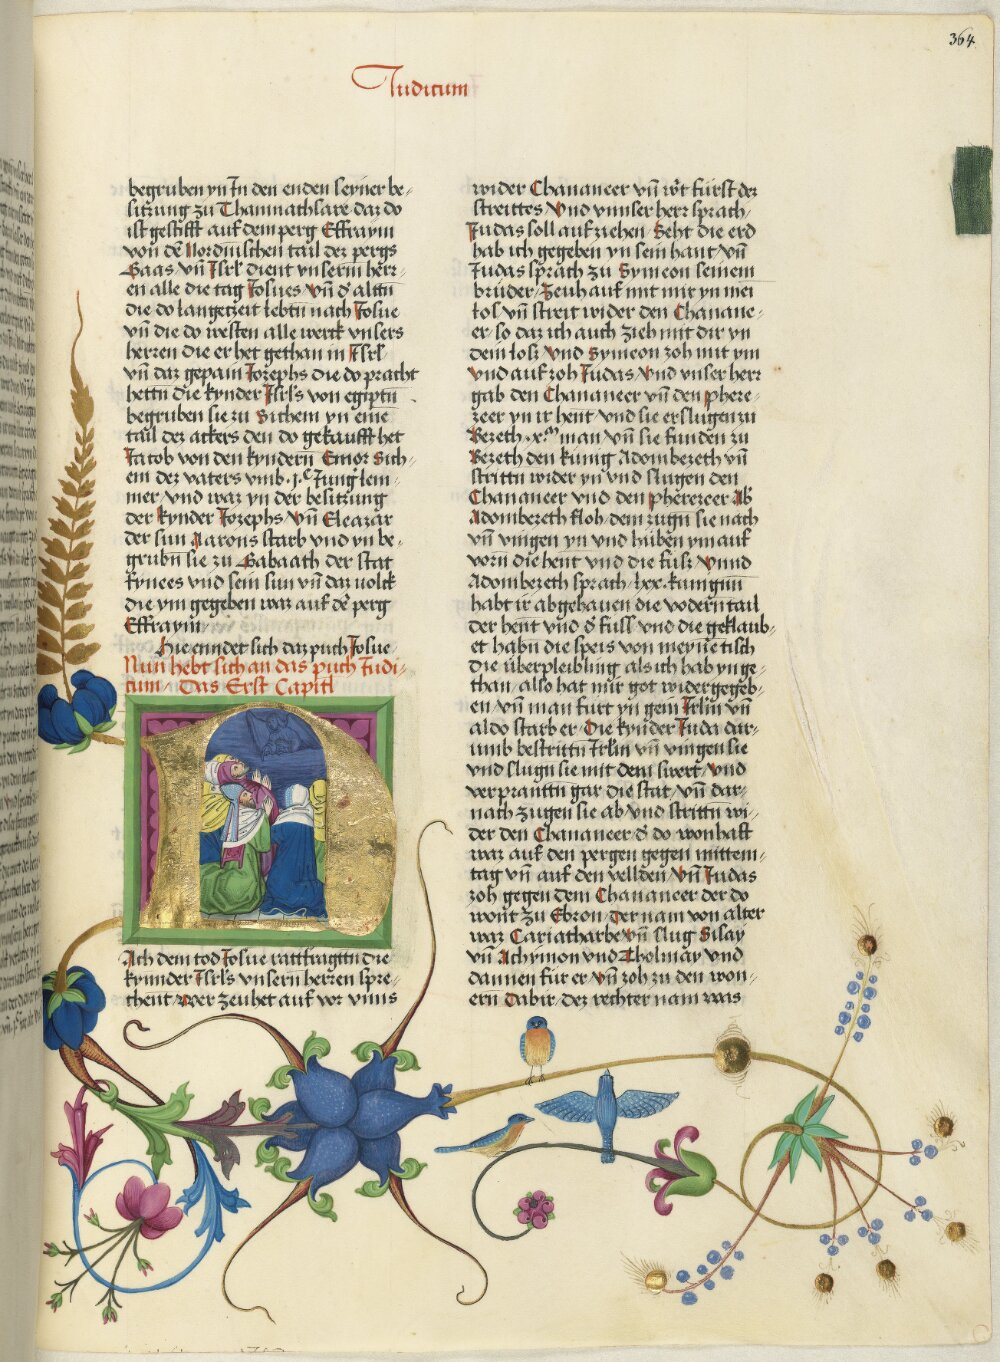 364
Judicum
begruben yn In den enden seyner be-
sitzung zu Thamnathsare daz do
ist gestifft auf dem perg Effraym
von dē Nordnischen tail dez pergs
Gaas vn̄ Isrl̄ dient vnserm herr-
en alle die tag Josues vn̄ d' altn̄
die do langezeit lebtn̄ nach Josue
vn̄ die do westen alle werck vnsers
herren die er het gethan in Isrl̄
vn̄ daz gepain Jozephs die do pracht
hettn̄ die kynder Isrl̄s von egiptn̄
begruben sie zu Sichem yn eine
tail dez ackers den do gekaufft het
Jacob von den kyndern̄ Emor Sich-
em dez vaters vmb .j.c Jung lem-
mer vnd waz yn der besitzung
der kynder Jozephs vn̄ Eleazar
der sun Aarons starb vnd yn be-
grubn̄ sie zu Gabaath der stat
fynees vnd sein sun vn̄ daz volck
die ym gegeben waz auf dē perg
Effraym
Hie enndet sich daz puch Josue
Nun hebt sich an das puch Judi-
cum Das Erst Capitl
Ach dem tod Josue rattfragttn̄ die
kynnder Isrl̄s vnsern̄ herren spre-
chent wer zeuhet auf vor vnns
wider Chananeer vn̄ w't fürst dez
streittes Vnd vnnser herr sprach
Judas soll auf ziehen Seht die erd
hab ich gegeben yn sein hant vn̄
Judas sprach zu Symeon seinem
bruder Zeuh auf mit mir yn mei
los vn̄ streit wider den Chanane-
er so daz ich auch zieh mit dir yn
dein losz Vnd Symeon zoh mit ym
Vnd auf zoh Judas Vnd vnser herr
gab den Chananeer vn̄ den phere-
zeer yn ir hent Vnd sie erslugen zu
Bezeth .x.m man vn̄ sie funden zu
Bezeth den kunig Adombezeth vn̄
strittn̄ wider yn vnd slugen den
Chananeer vnd den pherezeer Ab
Adombezeth floh dem zugn̄ sie nach
vn̄ vingen yn vnd hüben ym auf
vorn̄ die hent vnd die fusz Vnnd
Adombezeth sprach lxx kunigm̄
habt ir abgehauen die vodern̄ tail
der hent vnd d' fuss vnd die geklaub-
et habn̄ die speis von meyne tisch
die überpleibling als ich hab yn ge-
than also hat mir got wider gegeb-
en vn̄ man furt yn gein Irlm̄ vn̄
aldo starb er Die kynder Juda dar-
umb bestrittn̄ Irlm̄ vn̄ vingen sie
vnd slugn̄ sie mit dem swert Vnd
verpranttn̄ gar die stat vn̄ dar-
nach zugen sie ab vnd strittn̄ wi-
der den Chananeer d' do wonhaft
waz auf den pergen gegen mittem-
tag vn̄ auf den vellden Vn̄ Judas
zoh gegen dem Chananeer der do
wont zu Ebron Der nam von alter
waz Cariatharbe vn̄ slug Sisay
vn̄ Achymon vnd Tholmay Vnd
dannen für er vn̄ zoh zu den won-
ern̄ Dabir dez rechter nam was